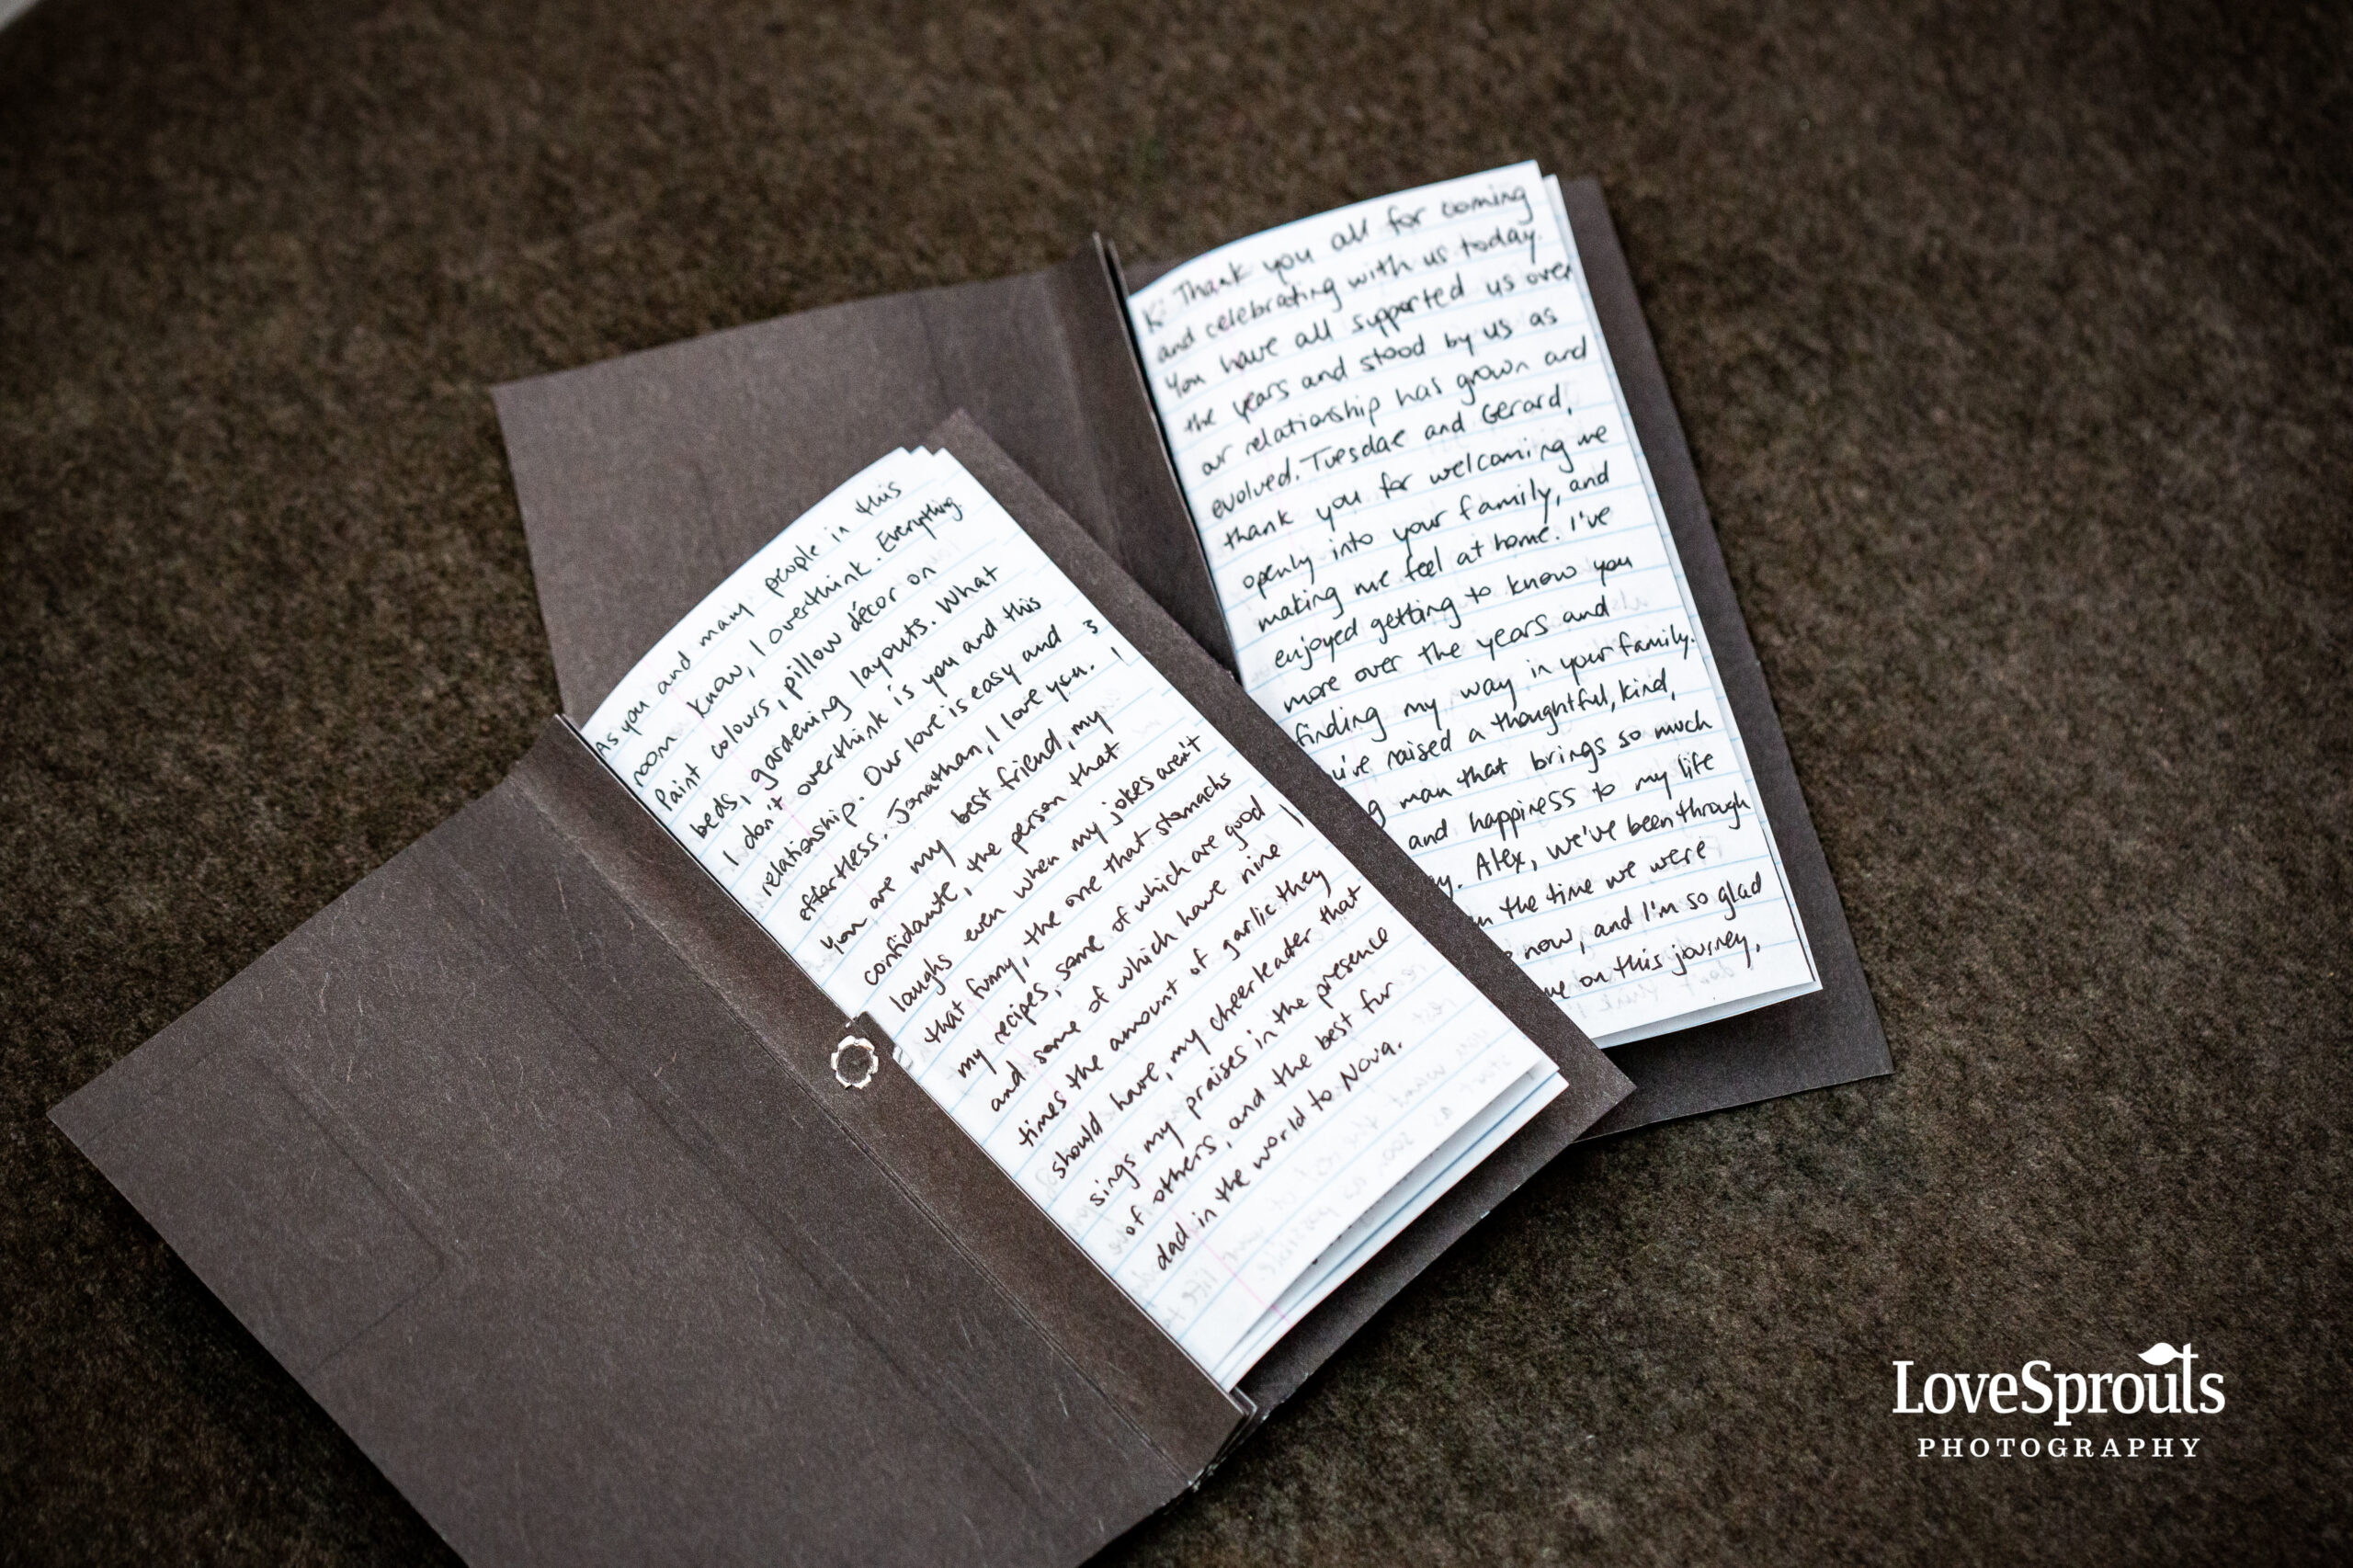 As you and many people in this
room know, I overthink. Everything.
Paint colours, pillow décor on
beds, gardening layouts. What
I don't overthink is you and this
relationship. Our love is easy and 3
effortless. Jonathan, I love you. 1
you are my best friend, my
confidante, the person that
laughs even when my jokes aren't
that funny, the one that stomachs
my recipes, some of which are good
and some of which have nine
times the amount of garlic they
should have, my cheerleader that
sings my praises in the presence
of others, and the best fur
dad in the world to Nova.
K: Thank you all for coming
and celebrating with us today.
You have all supported us over
the years and stood by us as
our relationship has grown and
evolved. Tuesdae and Gerard,
thank you for welcoming me
openly into your family, and
making me feel at home. I've
enjoyed getting to know you
more over the years and
finding my way in your family.
raised a thoughtful, kind,
man that brings so much
and happiness to my life
Alex, we've been through
the time we were
now, and I'm so glad
on this journey,
LoveSprouts
PHOTOGRAPHY